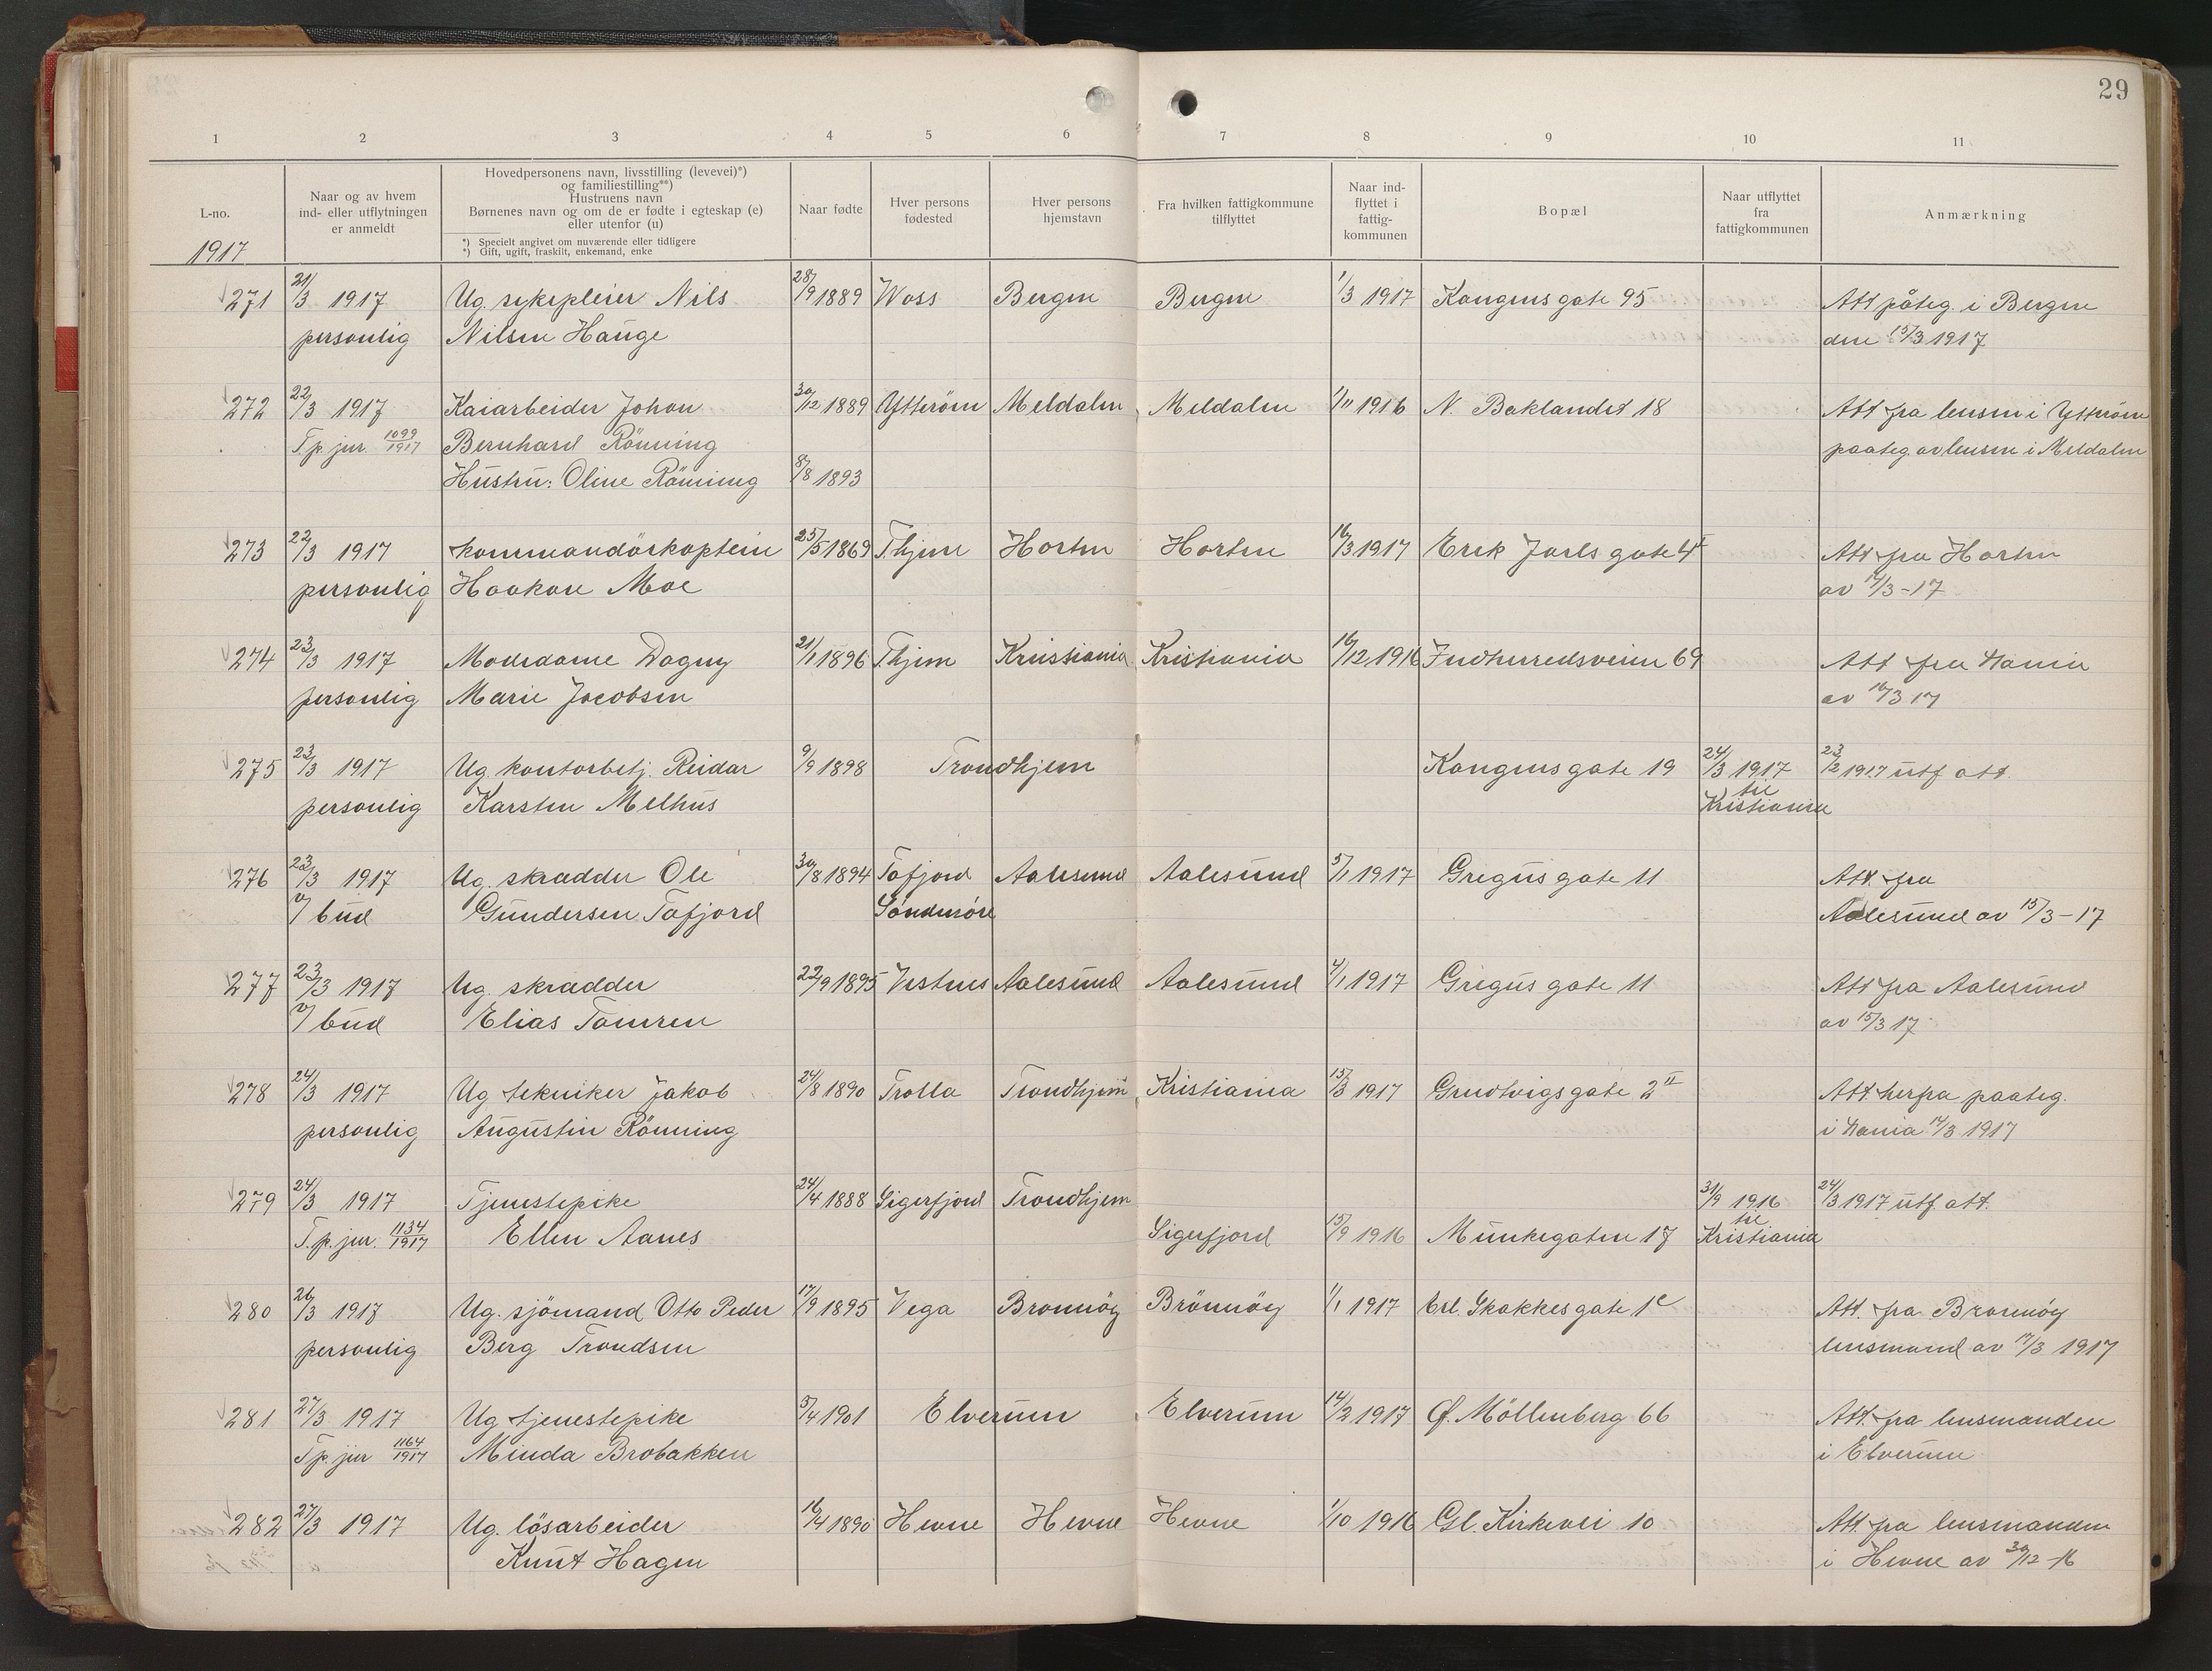 29
1 2 3 4 5 6 7 8 9 10 11
L-no.
1917
Naar og av hvem
ind- eller utflytningen
er anmeldt
Hovedpersonens navn, livsstilling (levevei)*)
og familiestilling**)
Hustruens navn
Børnenes navn og om de er fødte i egteskap (e)
eller utenfor (u)
*) Specielt angivet om nuværende eller tidligere
*) Gift, ugift, fraskilt, enkemand, enke
Naar fødte
Hver persons
fødested
Hver persons
hjemstavn
Fra hvilken fattigkommune
tilflyttet
Naar ind-
flyttet i
fattig-
kommunen
Bopæl
Naar utflyttet
fra
fattigkommunen
Anmærkning
271 21/3 1917 Ug. sykepleier Nils 28/9 1889 Woss Bergen Bergen 1/3 1917 Kongens gate 95 Att påteg. i Bergen
personlig Nilsen Hauge den 15/3 1917
272 22/3 1917 Kaiarbeider Johan 30/12 1889 Ytterøen Meldalen Meldalen 1/11 1916 N. Baklandet 18 Att fra lensm i Ytterøen
T. p. jur. 1099/1917 Bernhard Rönning paateg av lensm i Meldalen
Hustru: Oline Rönning 8/8 1893
273 22/3 1917 kommandörkaptein 25/5 1869 T.hjem Horten Horten 16/3 1917 Erik Jarls gate 4 I Att fra Horten
personlig Haakon Moe av 14/3-17
274 23/3 1917 Motedame Dagny 21/1 1896 T.hjem Kristiania Kristiania 16/12 1916 Indherredsveien 69 Att fra Kania
personlig Marie Jacobsen av 16/3 17
275 23/3 1917 Ug. kontorbetj. Reidar 9/9 1898 Trondhjem Kongens gate 19 24/3 1917 23/2 1917 utf att.
personlig Karsten Melhus til
Kristiania
276 23/3 1917 Ug. skrædder Ole 30/8 1894 Tafjord Aalesund Aalesund 5/1 1917 Gregus gate 11 Att. fra
v/ bud Gundersen Tafjord Söndmöre Aalesund av 15/3-17
277 23/3 1917 Ug. skrædder 22/9 1895 Vestnes Aalesund Aalesund 4/1 1917 Gregus gate 11 Att fra Aalesund
v/ bud Elias Tomren av 15/3 17
278 24/3 1917 Ug tekniker Jakob 24/8 1890 Trolla Trondhjem Kristiania 15/3 1917 Grudtvigs gate 2 II Att herfra paateg.
personlig Augustin Rönning i Kania 14/3 1917
279 24/3 1917 Tjenestepike 24/4 1888 Sigerfjord Trondhjem 31/9 1916 24/3 1917 utf. att.
T. p. jur. 1134/1917 Ellen Aanes Sigerfjord 15/9 1916 Munkegaten 17 til
Kristiania
280 26/3 1917 Ug. sjömand Otto Peder 17/9 1895 Vega Brönnöy Brönnöy 1/1 1917 Erl. Skakkes gate 1c Att. fra Brönnöy
personlig Berg Trondsen lensmand av 17/3 1917
281 27/3 1917 Ug tjenestepike 5/4 1901 Elverum Elverum 14/2 1917 Ø. Möllenberg 66 Att. fra lensmanden
T p. jur 1164/1917 Minda Brobakken i Elverum
282 27/3 1917 Ug. lösarbeider 16/4 1890 Hevne Hevne Hevne 1/10 1916 Gl. Kirkevei 10 Att. fra lensmanden
Knut Hagen i Hevne av 30/12-16